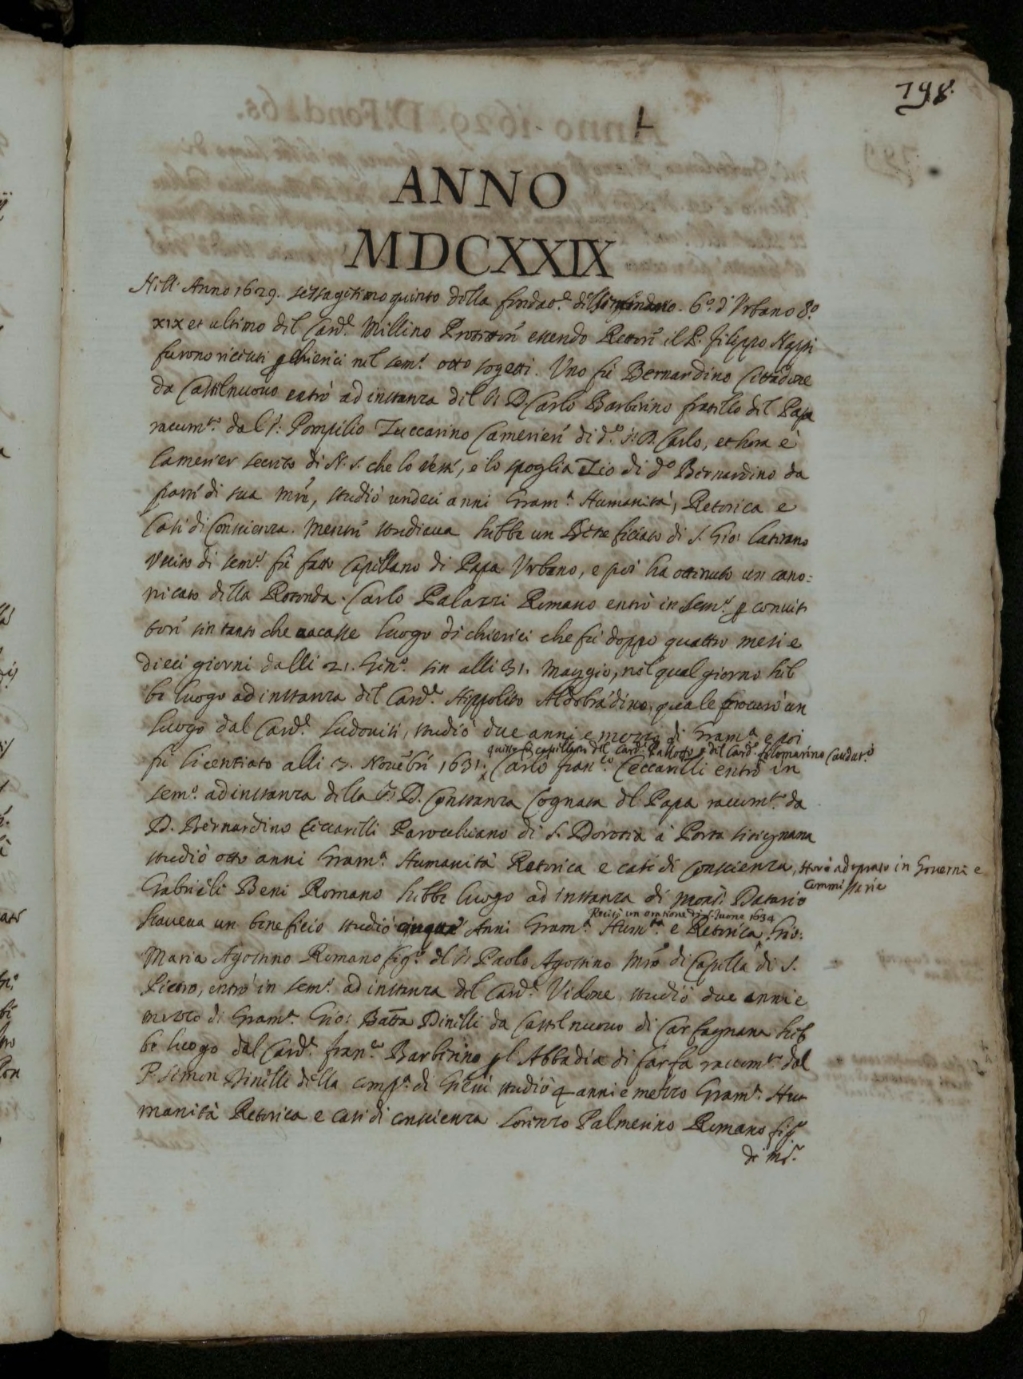 798.
ANNO
MDCXXIX
Nell'Anno 1629. sessagesimoquinto della fondao.e del Seminario. 6.o d'Urbano 8.o
XIX et ultimo del Card.e Millino Protettore essendo Rettore il P. filippo Nappi
furono riceuti p chierici nel sem.o otto sogetti. Uno fù Bernardino Cittadone
da Castelnuovo entrò ad instanza del S. D. Carlo Barberino fratello del Papa
racum.to dal S.r Pompilio Zuccarino Camerieri di d.o S.r D. Carlo, et hora è
Camerier secreto di N. S. che lo veste, e lo spoglia Zio di d.o Bernardino da
parte di sua mre, studiò undeci anni Gram.a Humanità, Retorica e
Casi di Conscienza. Mentre studiava hebbe un Beneficiato di S. Gio: Laterano
Uscito di sem.o fù fatto Capellano di Papa Urbano, e poi ha ottenuto un cano:
nicato della Rotonda. Carlo Palazzi Romano entrò in Sem.o p convit
tore sin tanto che vacasse luogo di chierici che fù doppo quattro mesi e
dieci giorni dalli 21. Gen.o sin alli 31. Maggio, nel qual giorno heb
be luogo ad instanza del Card.e Hippolito Aldobrādino, quale procurò un
luogo dal Card.e Ludovisi, studiò due anni e mezzo di Gram.a e poi
questo fù capellan del Card. Pallotto e del Card. filomarino Caudat.o
fù licentiato alli 3. Novēbre 1631. Carlo fran.co Ceccarelli entrò in
sem.o ad instanza della S. D. Constanza Cognata del Papa racum.to da
D. Bernardino Ceccarelli Parochiano di S. Dorotea à Porta Settignana
studiò otto anni Gram.a Humanità Retorica e casi di conscienza, stava adoprato in Governi e
Commissarie
Gabrieli Beni Romano hebbe luogo ad instanza di Mons. Datario
Recitò un orazione 1634
haveva un beneficio studiò cinque Anni Gram.a Hum.tà e Retorica, Gio:
Maria Agostino Romano fig.o del S. Paolo Agostino Mro di Capella di S.
Pietro, entrò in sem.o ad instanza del Card.e Vidone, studiò due anni e
mezzo di Gram.a Gio: Batta Dinelli da Castelnuovo di Carfagnana heb
be luogo dal Card.e fran.co Barberino p l'Abbadia di farfa racum.to dal
P. Simon Dinelli della Comp.a di Giesù studiò 4 anni e mezzo Gram.a Hu
manità Retorica e casi di conscienza. Lorenzo Palmerino Romano fig.o
di M.r